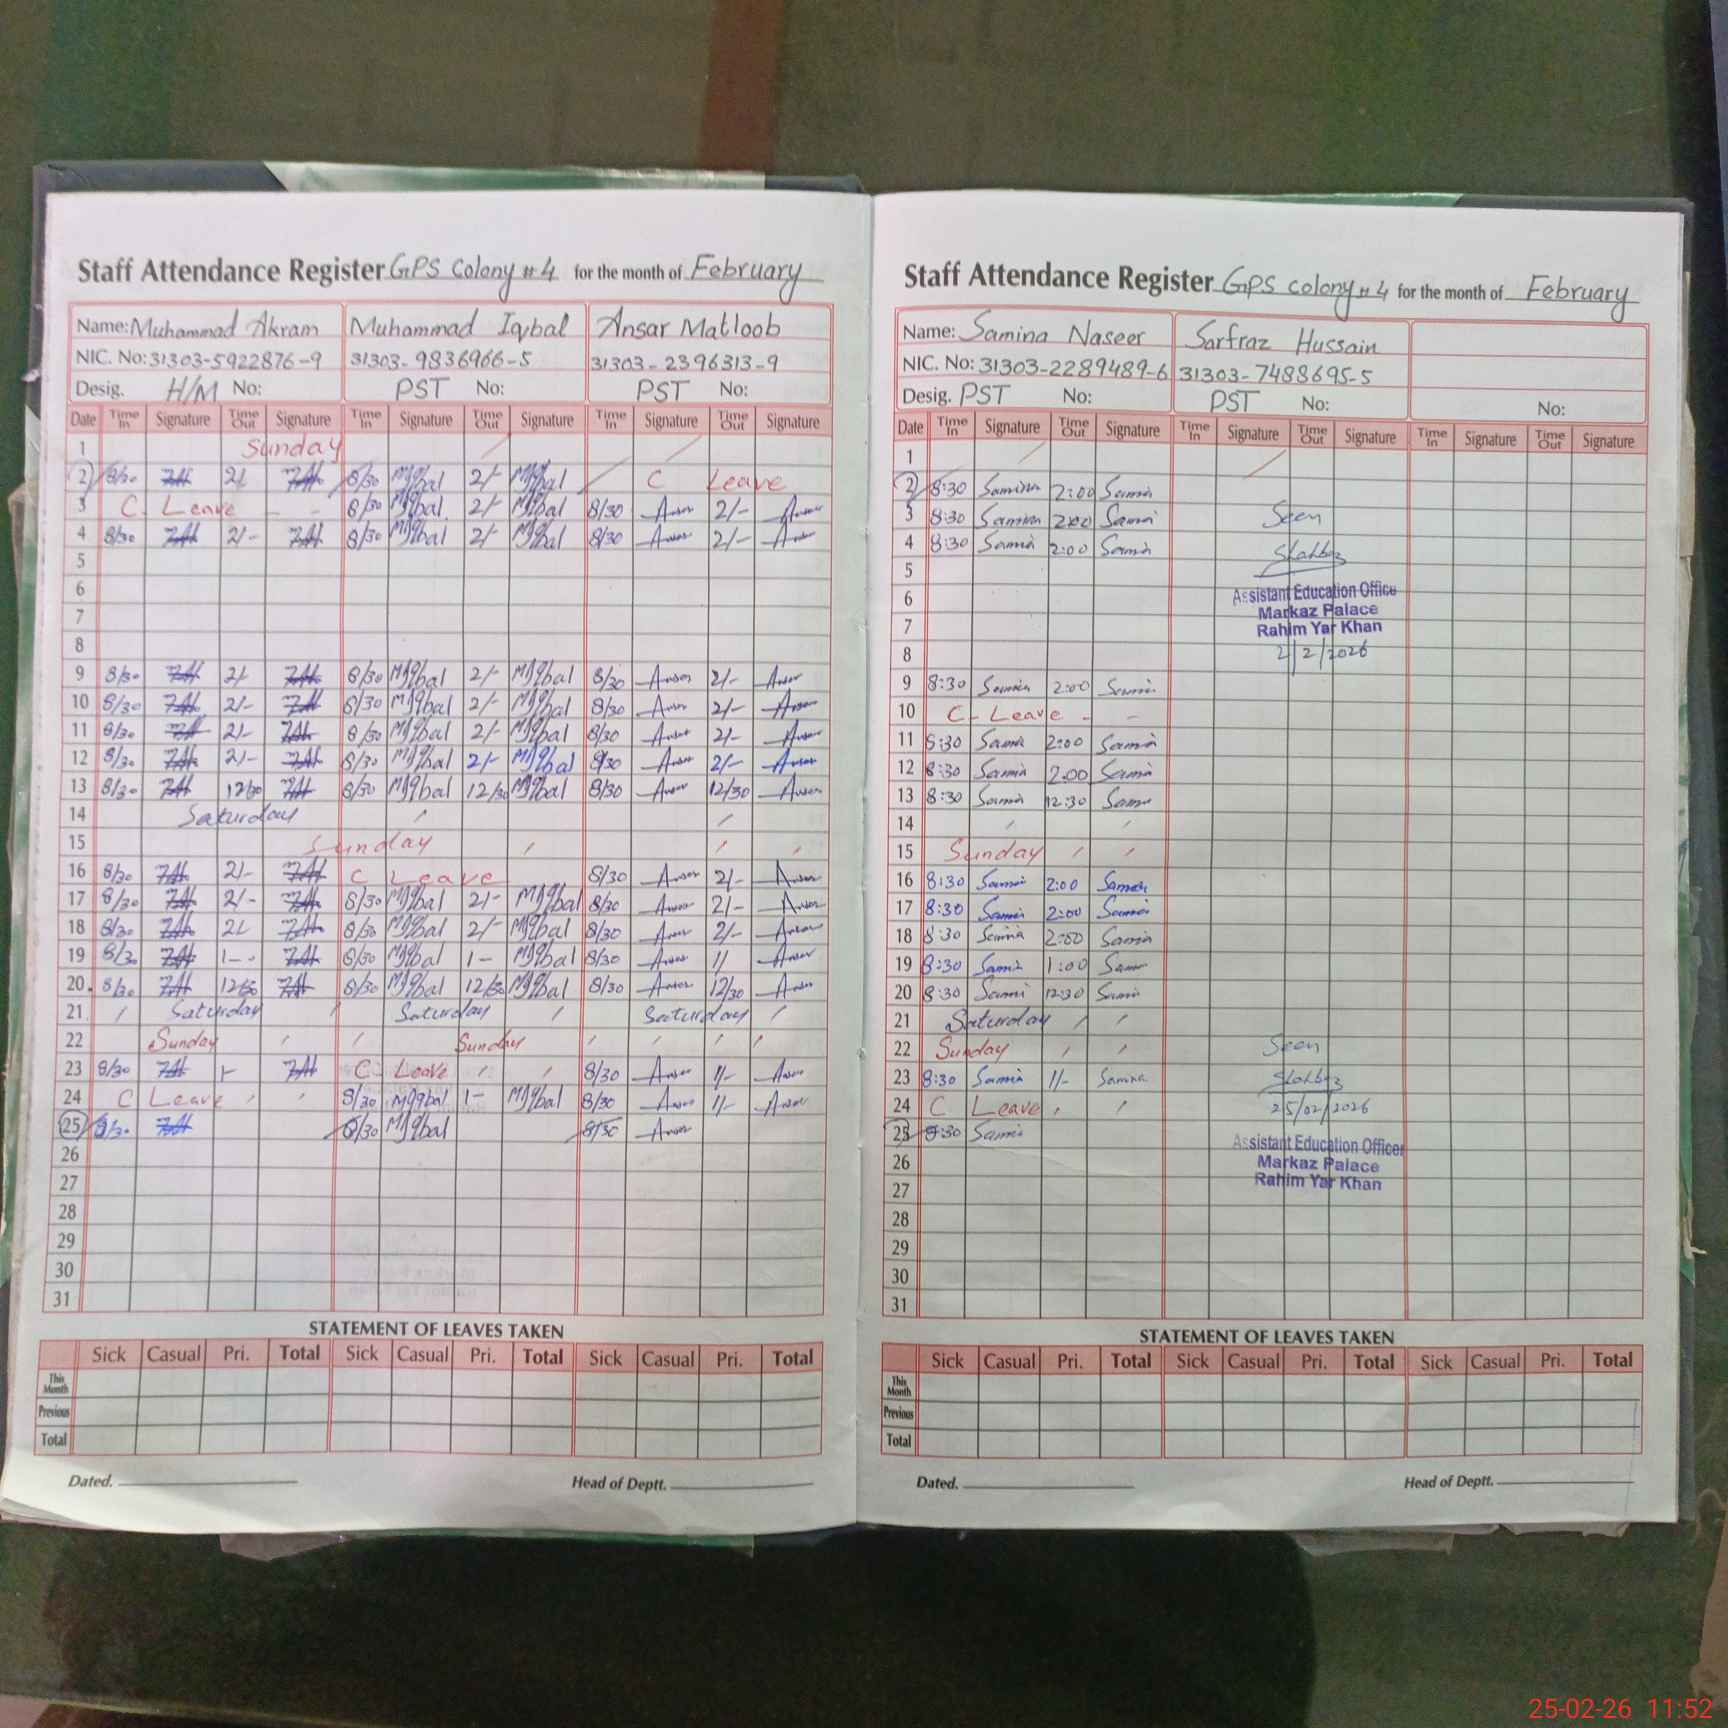 Staff Attendance Register GPS Colony # 4 for the month of February
Name: Muhammad Akram Muhammad Iqbal Ansar Matloob
NIC. No: 31303-5922876-9 31303-9836966-5 31303-2396313-9
Desig. H/M No: PST No: PST No:
Date Time In Signature Time Out Signature Time In Signature Time Out Signature Time In Signature Time Out Signature
1 Sunday
2 8/30 2/ 8/30 MIqbal 2/- MIqbal C Leave
3 C Leave - - 8/30 MIqbal 2/- MIqbal 8/30 Ansar 2/- Ansar
4 8/30 2/- 8/30 MIqbal 2/- MIqbal 8/30 Ansar 2/- Ansar
5
6
7
8
9 8/30 2/- 8/30 MIqbal 2/- MIqbal 8/30 Ansar 2/- Ansar
10 8/30 2/- 8/30 MIqbal 2/- MIqbal 8/30 Ansar 2/- Ansar
11 8/30 2/- 8/30 MIqbal 2/- MIqbal 8/30 Ansar 2/- Ansar
12 8/30 2/- 8/30 MIqbal 2/- MIqbal 8/30 Ansar 2/- Ansar
13 8/30 12/30 8/30 MIqbal 12/30 MIqbal 8/30 Ansar 12/30 Ansar
14 Saturday
15 Sunday
16 8/30 2/- C Leave 8/30 Ansar 2/- Ansar
17 8/30 2/- 8/30 MIqbal 2/- MIqbal 8/30 Ansar 2/- Ansar
18 8/30 2/ 8/30 MIqbal 2/- MIqbal 8/30 Ansar 2/- Ansar
19 8/30 1-- 8/30 MIqbal 1- MIqbal 8/30 Ansar 1/ Ansar
20 8/30 12/30 8/30 MIqbal 12/30 MIqbal 8/30 Ansar 12/30 Ansar
21 Saturday Saturday Saturday
22 Sunday Sunday
23 8/30 1- C Leave 8/30 Ansar 1/- Ansar
24 C Leave 8/30 MIqbal 1- MIqbal 8/30 Ansar 1/- Ansar
25 8/30 8/30 MIqbal 8/30 Ansar
26
27
28
29
30
31
STATEMENT OF LEAVES TAKEN
Sick Casual Pri. Total Sick Casual Pri. Total Sick Casual Pri. Total
This Month
Previous
Total
Dated. Head of Deptt.
Staff Attendance Register GPS colony # 4 for the month of February
Name: Samina Naseer Sarfraz Hussain
NIC. No: 31303-2289489-6 31303-7488695-5
Desig. PST No: PST No: No:
Date Time In Signature Time Out Signature Time In Signature Time Out Signature Time In Signature Time Out Signature
1
2 8:30 Samina 2:00 Samina
3 8:30 Samina 2:00 Samina Seen
4 8:30 Samina 2:00 Samina Shahbaz
5
6 Assistant Education Office
Markaz Palace
7 Rahim Yar Khan
8 2/2/2026
9 8:30 Samina 2:00 Samina
10 C- Leave - -
11 8:30 Samina 2:00 Samina
12 8:30 Samina 2:00 Samina
13 8:30 Samina 12:30 Samina
14
15 Sunday
16 8:30 Samina 2:00 Samina
17 8:30 Samina 2:00 Samina
18 8:30 Samina 2:00 Samina
19 8:30 Samina 1:00 Samina
20 8:30 Samina 12:30 Samina
21 Saturday
22 Sunday Seen
23 8:30 Samina 1/- Samina Shahbaz
24 C Leave 25/02/2026
25 8:30 Samina
Assistant Education Officer
26 Markaz Palace
27 Rahim Yar Khan
28
29
30
31
STATEMENT OF LEAVES TAKEN
Sick Casual Pri. Total Sick Casual Pri. Total Sick Casual Pri. Total
This Month
Previous
Total
Dated. Head of Deptt.
25-02-26 11:52